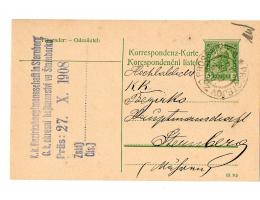 Absender: - Odesílatel:
Korrespondenz-Karte.
Korespondenční lístek.
K.k. Bezirkshauptmannschaft in Sternberg
C. k. okresní hejtmanství ve Šternberku
Präs: 27. X. 1908
Zahl
Čís.
Hochlöbliche
KK.
Bezirks
Hauptmannschaft
Sternberg
(Mähren)